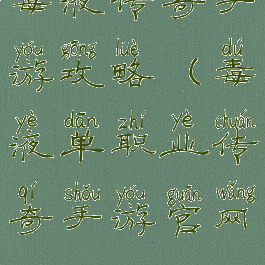 毒液传奇手
yóu gōng lüè dú
游攻略(毒
yè dān zhí yè chuán
液单职业传
qí shǒu yóu guān wǎng
奇手游官网